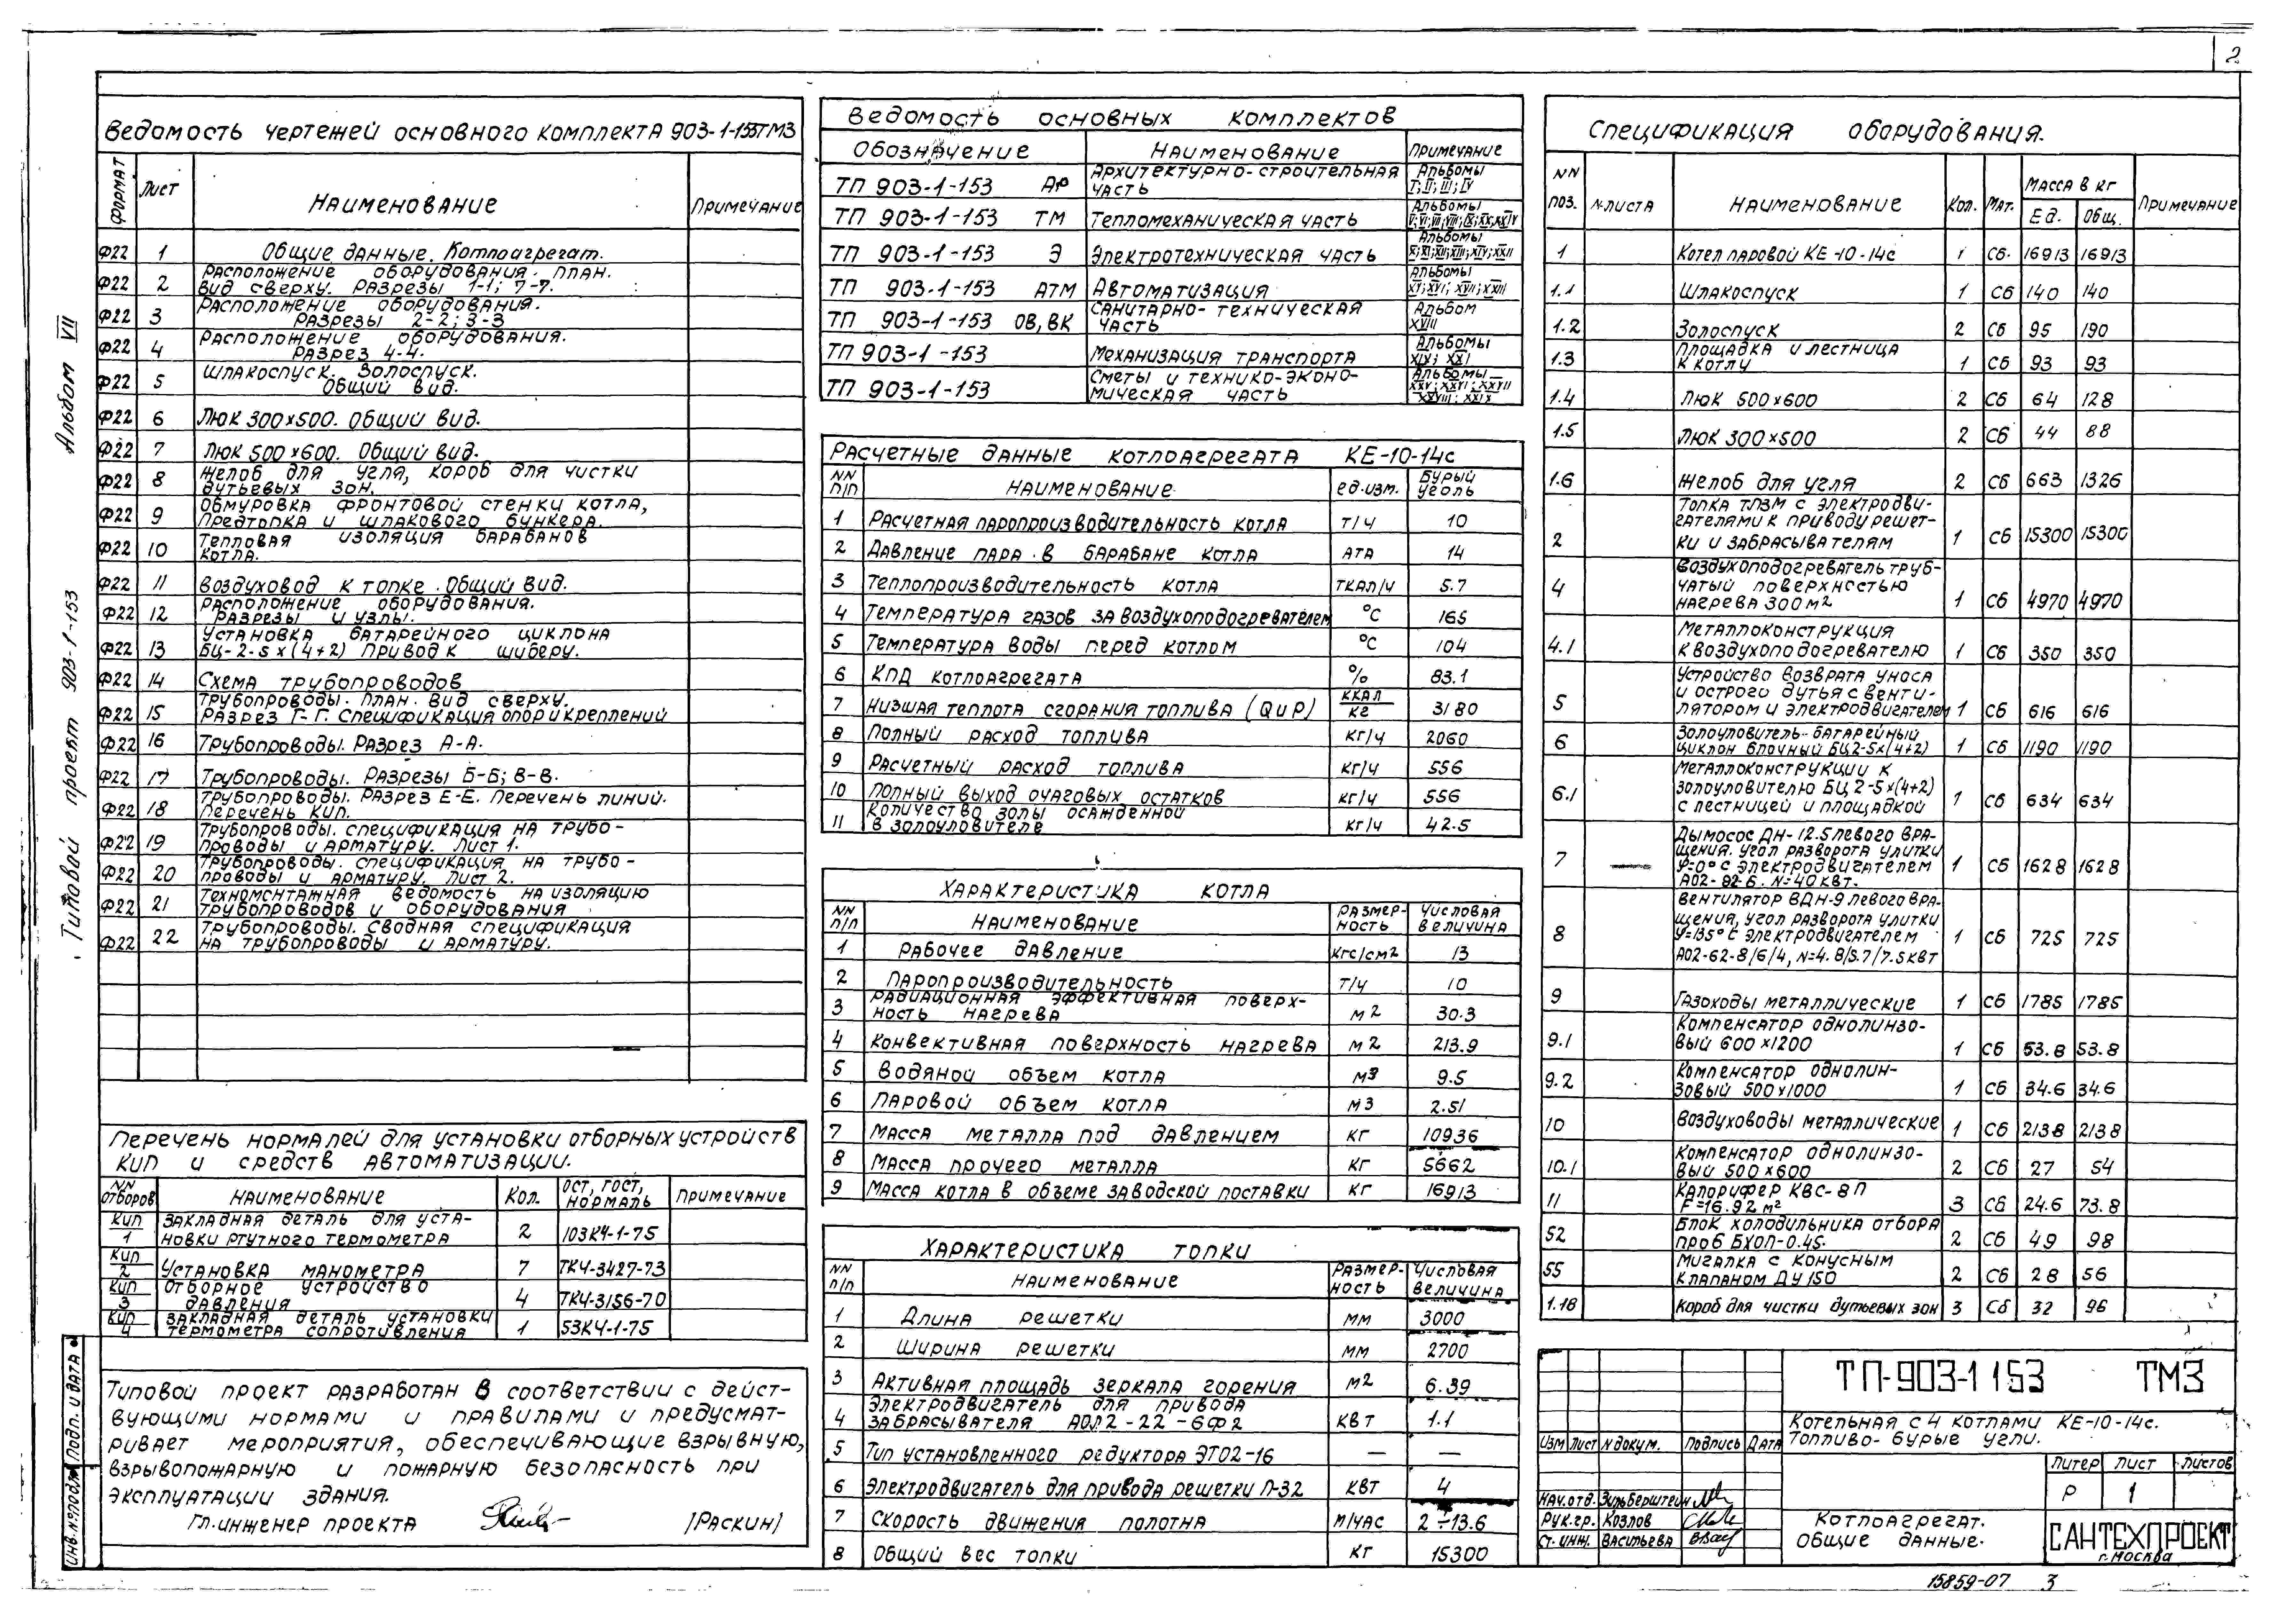 2
Альбом VII
Типовой проект 903-1-153
Ведомость чертежей основного комплекта 903-1-153ТМ3
Формат Лист Наименование Примечание
Ф22 1 Общие данные. Котлоагрегат.
Ф22 2 Расположение оборудования. План.
Вид сверху. Разрезы 1-1; 7-7.
Ф22 3 Расположение оборудования.
Разрезы 2-2; 3-3
Ф22 4 Расположение оборудования.
Разрез 4-4.
Ф22 5 Шлакоспуск. Золоспуск.
Общий вид.
Ф22 6 Люк 300х500. Общий вид.
Ф22 7 Люк 500х600. Общий вид.
Ф22 8 Желоб для угля, короб для чистки
дутьевых зон.
Ф22 9 Обмуровка фронтовой стенки котла,
предтопка и шлакового бункера.
Ф22 10 Тепловая изоляция барабанов
котла.
Ф22 11 Воздуховод к топке. Общий вид.
Ф22 12 Расположение оборудования.
Разрезы и узлы.
Ф22 13 Установка батарейного циклона
БЦ-2-5х(4+2) Привод к шиберу.
Ф22 14 Схема трубопроводов
Ф22 15 Трубопроводы. План. Вид сверху.
Разрез Г-Г. Спецификация опор и креплений
Ф22 16 Трубопроводы. Разрез А-А.
Ф22 17 Трубопроводы. Разрезы Б-Б; В-В.
Ф22 18 Трубопроводы. Разрез Е-Е. Перечень линий.
Перечень КИП.
Ф22 19 Трубопроводы. Спецификация на трубо-
проводы и арматуру. Лист 1.
Ф22 20 Трубопроводы. Спецификация на трубо-
проводы и арматуру. Лист 2.
Ф22 21 Техномонтажная ведомость на изоляцию
трубопроводов и оборудования
Ф22 22 Трубопроводы. Сводная спецификация
на трубопроводы и арматуру.
Перечень нормалей для установки отборных устройств
КИП и средств автоматизации.
NN отборов Наименование Кол. ОСТ, ГОСТ, нормаль Примечание
КИП 1 Закладная деталь для уста-
новки ртутного термометра 2 103КЧ-1-75
КИП 2 Установка манометра 7 ТКЧ-3427-73
КИП 3 Отборное устройство
давления 4 ТКЧ-3156-70
КИП 4 Закладная деталь установки
термометра сопротивления 1 53КЧ-1-75
Типовой проект разработан в соответствии с дейст-
вующими нормами и правилами и предусмат-
ривает мероприятия, обеспечивающие взрывную,
взрывопожарную и пожарную безопасность при
эксплуатации здания.
Гл. инженер проекта /Раскин/
Подп. и дата
Инв. № подл.
Ведомость основных комплектов
Обозначение Наименование Примечание
ТП 903-1-153 АР Архитектурно-строительная
часть Альбомы
I; II; III; IV
ТП 903-1-153 ТМ Тепломеханическая часть Альбомы
ТП 903-1-153 Э Электротехническая часть Альбомы
X; XI; XII; XIII; XIV; XXII
ТП 903-1-153 АТМ Автоматизация Альбомы
XV; XVI; XVII; XXIII
ТП 903-1-153 ОВ, ВК Санитарно-техническая
часть Альбом
XVIII
ТП 903-1-153 Механизация транспорта Альбомы
XIX; XXI
ТП 903-1-153 Сметы и технико-эконо-
мическая часть Альбомы
XXV; XXVI; XXVII
XXVIII; XXIX
Расчетные данные котлоагрегата КЕ-10-14с
NN п/п Наименование ед. изм. Бурый уголь
1 Расчетная паропроизводительность котла т/ч 10
2 Давление пара в барабане котла ата 14
3 Теплопроизводительность котла ткал/ч 5.7
4 Температура газов за воздухоподогревателем °С 165
5 Температура воды перед котлом °С 104
6 КПД котлоагрегата % 83.1
7 Низшая теплота сгорания топлива (QнР) ккал/кг 3180
8 Полный расход топлива кг/ч 2060
9 Расчетный расход топлива кг/ч 556
10 Полный выход очаговых остатков кг/ч 556
11 Количество золы осажденной
в золоуловителе кг/ч 42.5
Характеристика котла
NN п/п Наименование Размерность Числовая величина
1 Рабочее давление кгс/см2 13
2 Паропроизводительность т/ч 10
3 Радиационная эффективная поверх-
ность нагрева м2 30.3
4 Конвективная поверхность нагрева м2 213.9
5 Водяной объем котла м3 9.5
6 Паровой объем котла м3 2.51
7 Масса металла под давлением кг 10936
8 Масса прочего металла кг 5662
9 Масса котла в объеме заводской поставки кг 16913
Характеристика топки
NN п/п Наименование Размерность Числовая величина
1 Длина решетки мм 3000
2 Ширина решетки мм 2700
3 Активная площадь зеркала горения м2 6.39
4 Электродвигатель для привода
забрасывателя АОЛ2-22-6Ф2 квт 1.1
5 Тип установленного редуктора ЭТ02-16 — —
6 Электродвигатель для привода решетки П-32 квт 4
7 Скорость движения полотна м/час 2÷13.6
8 Общий вес топки кг 15300
Спецификация оборудования.
NN поз. N листа Наименование Кол. Мат. Масса в кг Ед. Общ. Примечание
1 Котел паровой КЕ-10-14с 1 Сб. 16913 16913
1.1 Шлакоспуск 1 Сб 140 140
1.2 Золоспуск 2 Сб 95 190
1.3 Площадка и лестница
к котлу 1 Сб 93 93
1.4 Люк 500х600 2 Сб 64 128
1.5 Люк 300х500 2 Сб 44 88
1.6 Желоб для угля 2 Сб 663 1326
2 Топка ТЛЗМ с электродви-
гателями к приводу решет-
ки и забрасывателям 1 Сб 15300 15300
4 Воздухоподогреватель труб-
чатый поверхностью
нагрева 300 м2 1 Сб 4970 4970
4.1 Металлоконструкция
к воздухоподогревателю 1 Сб 350 350
5 Устройство возврата уноса
и острого дутья с венти-
лятором и электродвигателем 1 Сб 616 616
6 Золоуловитель-батарейный
циклон блочный БЦ 2-5х(4+2) 1 Сб 1190 1190
6.1 Металлоконструкции к
золоуловителю БЦ 2-5х(4+2)
с лестницей и площадкой 1 Сб 634 634
7 — Дымосос ДН-12.5 левого вра-
щения. Угол разворота улитки
φ=0° с электродвигателем
АО2-82-6. N=40 квт. 1 Сб 1628 1628
8 Вентилятор ВДН-9 левого вра-
щения, угол разворота улитки
φ=135° с электродвигателем
АО2-62-8/6/4, N=4.8/5.7/7.5 квт 1 Сб 725 725
9 Газоходы металлические 1 Сб 1785 1785
9.1 Компенсатор однолинзо-
вый 600х1200 1 Сб 53.8 53.8
9.2 Компенсатор однолин-
зовый 500х1000 1 Сб 34.6 34.6
10 Воздуховоды металлические 1 Сб 2138 2138
10.1 Компенсатор однолинзо-
вый 500х600 2 Сб 27 54
11 Калорифер КВС-8П
F=16.92 м² 3 Сб 24.6 73.8
52 Блок холодильника отбора
проб БХОП-0.45. 2 Сб 49 98
55 Мигалка с конусным
клапаном ДУ 150 2 Сб 28 56
1.18 Короб для чистки дутьевых зон 3 Сб 32 96
ТП-903-1 153 ТМ3
Котельная с 4 котлами КЕ-10-14с.
Топливо-бурые угли.
Изм Лист N докум. Подпись Дата
Литер Лист Листов
Р 1
Нач. отд. Зильберштейн
Рук. гр. Козлов
Ст. инж. Васильева
Котлоагрегат.
Общие данные.
САНТЕХПРОЕКТ
г. Москва
15859-07 3